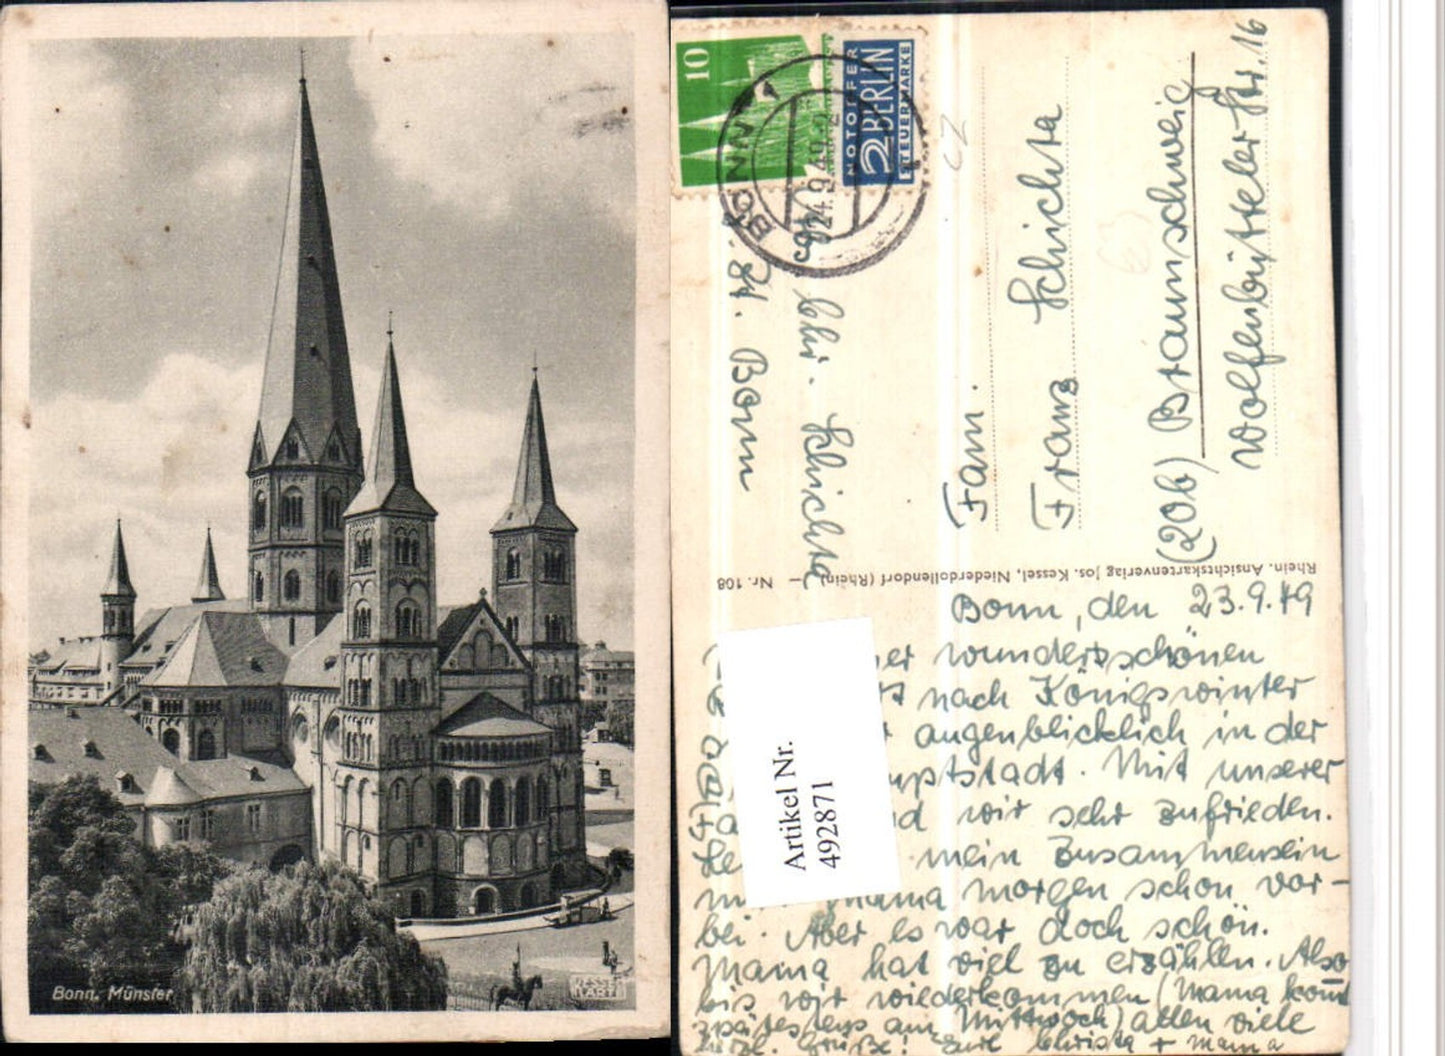 Bonn, Münster
KESSEL
KARTE
10
NOTOPFER
2 BERLIN
STEUERMARKE
BONN 1
24.9.49
Abs. Chr. Schichta
z. Zt. Bonn
Fam.
Franz Schichta
(20b) Braunschweig
Wolfenbütteler Str. 16
Rhein. Ansichtskartenverlag Jos. Kessel, Niederdollendorf (Rhein) — Nr. 108
Bonn, den 23.9.49
wunderschönen
nach Königswinter
augenblicklich in der
Mit unserer
wir sehr zufrieden.
mein Zusammensein
Mama morgen schon vor-
bei. Aber es war doch schön.
Mama hat viel zu erzählen. Also
bis wir wiederkommen (Mama kommt
spätestens am Mittwoch) allen viele
herzl. Grüße! Eure Christa + Mama
Artikel Nr.
492871